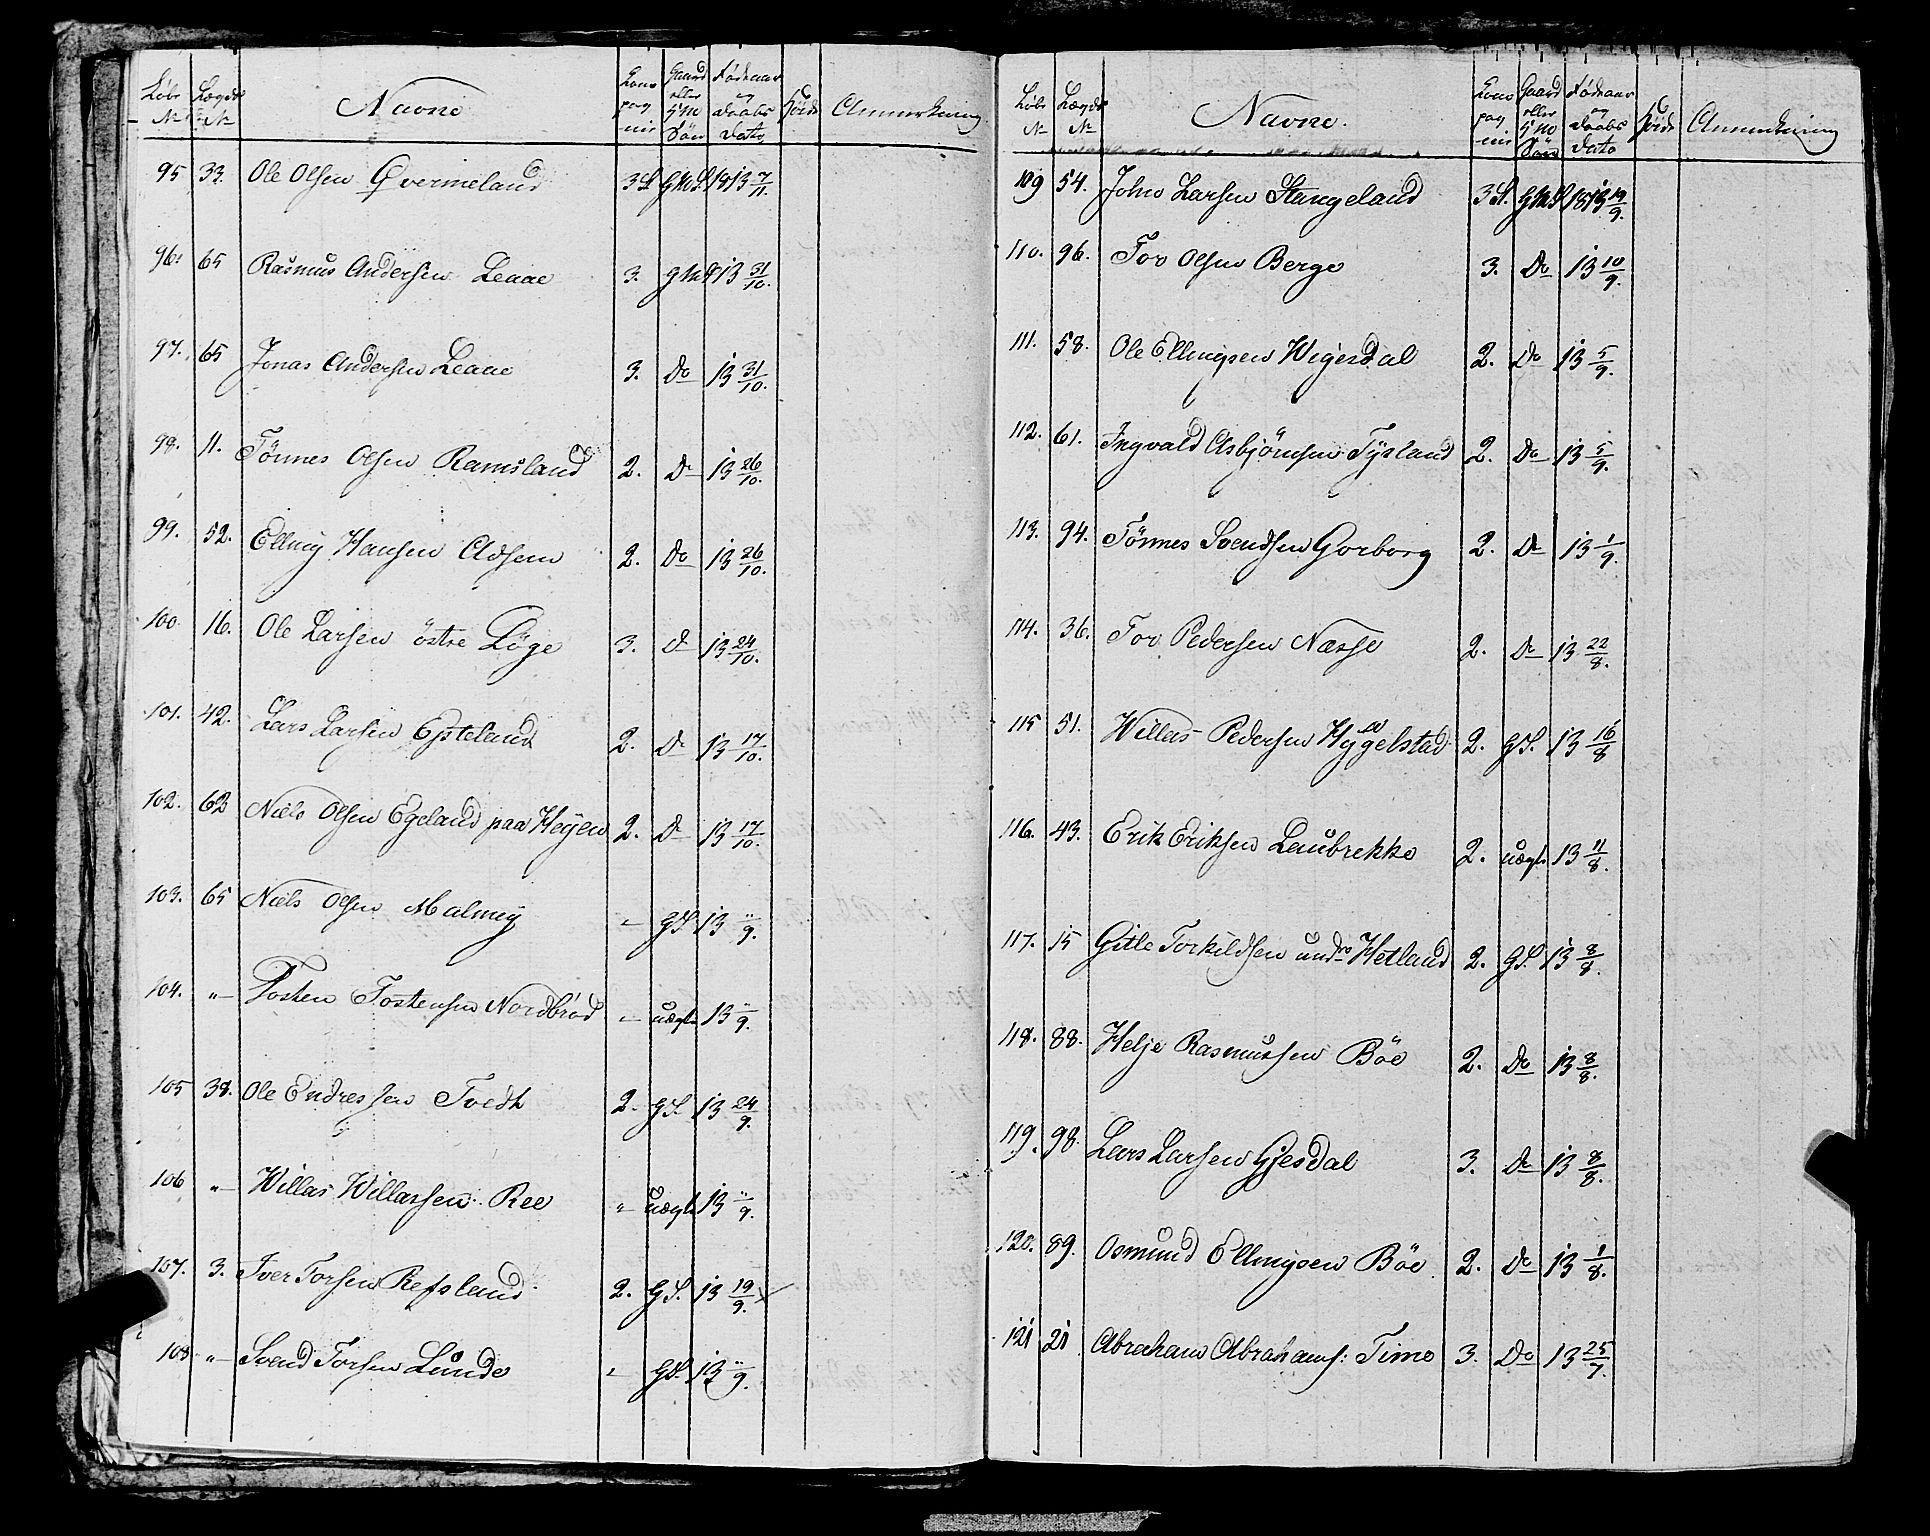 Løbe Lægds Navne Com Gaard Fødeaar Høide Anmerkning
№ №  pag eller og
nie HM Daabs
Søn Dato
95 33. Ole Olsen Qvermeland 3 S GMS 1813 7/11.
96. 65 Rasmus Andersen Leaae 3. GMS 13 31/10.
97. 65 Jonas Andersen Leaae 3. Do 13 31/10.
98. 11. Tønnes Olsen Ramsland 2. Do 13 26/10.
99. 52. Elling Hansen Aasen 2. Do 13 26/10.
100. 16. Ole Larsen östre Løge 3. Do 13 24/10.
101. 42. Lars Larsen Epteland 2. Do 13 17/10.
102. 62 Niels Olsen Egeland paa Heyen 2. Do 13 17/10.
103. 65 Niels Olsen Malmey - GS 13 "/9.
104. " Tosten Tostensen Nordbrød - uægte 13 "/9.
105 38. Ole Endressen Tvedt 2. GS. 13 24/9.
106 " Willas Willassen Ree " uægte 13 "/9.
107. 3. Iver Torsen Refsland 2. GS. 13 19/9.
108 " Svend Torsen Lunde - GS. 13 "/9.
Løbe Lægds Navne. Com Gaard Fødeaar Høide Anmerkning
№ № pag eller og
nie HM Daabs
Søn Dato
109 54. John Larsen Stangeland 3 S. GMS 1813 19/9.
110. 96. Tor Olsen Berge 3. Do 13 10/9.
111. 58. Ole Ellingsen Wigesdal 2. Do 13 5/9.
112. 61. Ingvald Asbjørnsen Tysland 2. Do 13 5/9.
113. 94. Tönnes Svendsen Gorborg 2. Do 13 1/9.
114. 36. Tor Pedersen Næsse 2. Do 13 22/8.
115 51. Willas Pedersen Hyggelstad 2. GS. 13 16/8
116. 43. Erik Eriksen Laubrekke 2. uægte 13 11/8.
117. 15 Gitle Torkildsen undre Hetland 2. GS. 13 8/8.
118. 88. Helje Rasmussen Böe 2. Do 13 8/8.
119. 98. Lars Larsen Gjesdal 3. Do 13 8/8.
120. 89. Osmund Ellingsen Böe 2. Do 13 1/8.
121 21 Abraham Abrahams: Timo 3. Do 13 25/7.